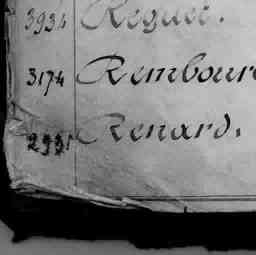 3934 Reguet.
3174 Rembour
2991 Renard.